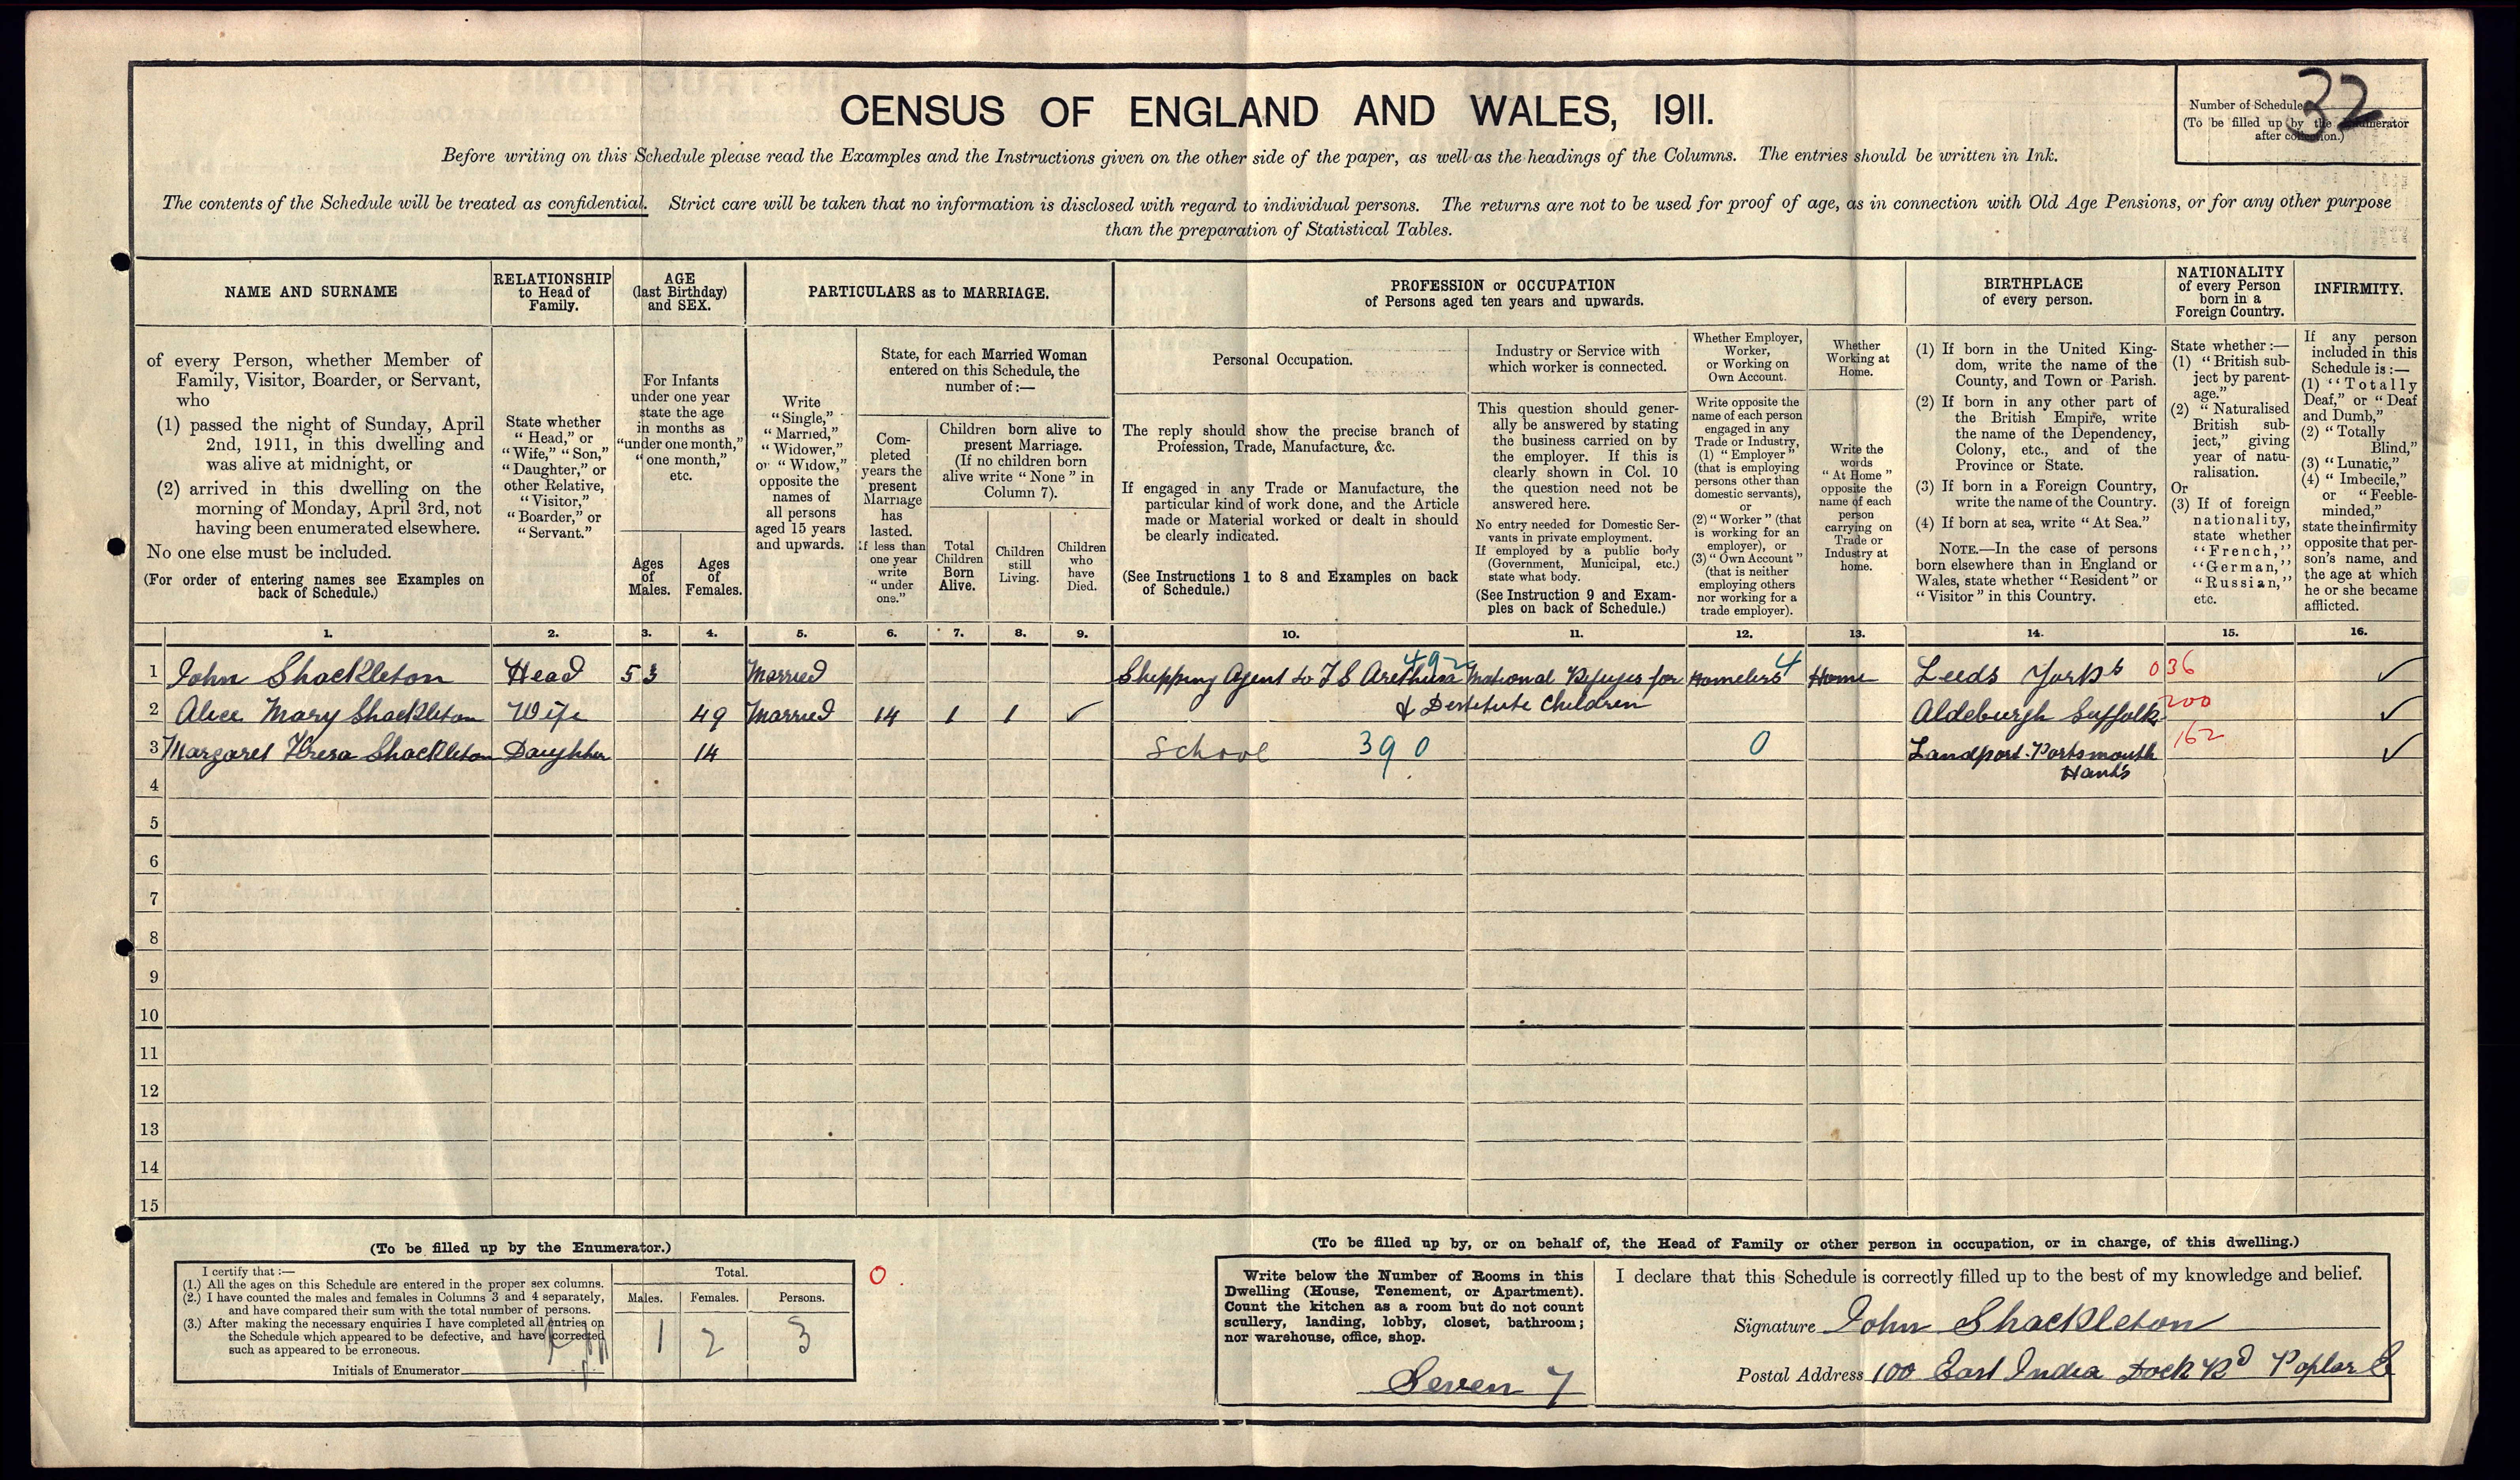 CENSUS OF ENGLAND AND WALES, 1911.
Number of Schedule 32
(To be filled up by the Enumerator
after collection.)
Before writing on this Schedule please read the Examples and the Instructions given on the other side of the paper, as well as the headings of the Columns. The entries should be written in Ink.
The contents of the Schedule will be treated as confidential. Strict care will be taken that no information is disclosed with regard to individual persons. The returns are not to be used for proof of age, as in connection with Old Age Pensions, or for any other purpose
than the preparation of Statistical Tables.
NAME AND SURNAME
of every Person, whether Member of
Family, Visitor, Boarder, or Servant,
who
(1) passed the night of Sunday, April
2nd, 1911, in this dwelling and
was alive at midnight, or
(2) arrived in this dwelling on the
morning of Monday, April 3rd, not
having been enumerated elsewhere.
No one else must be included.
(For order of entering names see Examples on
back of Schedule.)
RELATIONSHIP
to Head of
Family.
State whether
"Head," or
"Wife," "Son,"
"Daughter," or
other Relative,
"Visitor,"
"Boarder," or
"Servant."
AGE
(last Birthday)
and SEX.
For Infants
under one year
state the age
in months as
"under one month,"
"one month,"
etc.
Ages
of
Males.
Ages
of
Females.
PARTICULARS as to MARRIAGE.
Write
"Single,"
"Married,"
"Widower,"
or "Widow,"
opposite the
names of
all persons
aged 15 years
and upwards.
State, for each Married Woman
entered on this Schedule, the
number of:—
Com-
pleted
years the
present
Marriage
has
lasted.
If less than
one year
write
"under
one."
Children born alive to
present Marriage.
(If no children born
alive write "None" in
Column 7).
Total
Children
Born
Alive.
Children
still
Living.
Children
who
have
Died.
PROFESSION or OCCUPATION
of Persons aged ten years and upwards.
Personal Occupation.
The reply should show the precise branch of
Profession, Trade, Manufacture, &c.
If engaged in any Trade or Manufacture, the
particular kind of work done, and the Article
made or Material worked or dealt in should
be clearly indicated.
(See Instructions 1 to 8 and Examples on back
of Schedule.)
Industry or Service with
which worker is connected.
This question should gener-
ally be answered by stating
the business carried on by
the employer. If this is
clearly shown in Col. 10
the question need not be
answered here.
No entry needed for Domestic Ser-
vants in private employment.
If employed by a public body
(Government, Municipal, etc.)
state what body.
(See Instruction 9 and Exam-
ples on back of Schedule.)
Whether Employer,
Worker,
or Working on
Own Account.
Write opposite the
name of each person
engaged in any
Trade or Industry,
(1) "Employer"
(that is employing
persons other than
domestic servants),
or
(2) "Worker" (that
is working for an
employer), or
(3) "Own Account"
(that is neither
employing others
nor working for a
trade employer).
Whether
Working at
Home.
Write the
words
"At Home"
opposite the
name of each
person
carrying on
Trade or
Industry at
home.
BIRTHPLACE
of every person.
(1) If born in the United King-
dom, write the name of the
County, and Town or Parish.
(2) If born in any other part of
the British Empire, write
the name of the Dependency,
Colony, etc., and of the
Province or State.
(3) If born in a Foreign Country,
write the name of the Country.
(4) If born at sea, write "At Sea."
NOTE.—In the case of persons
born elsewhere than in England or
Wales, state whether "Resident" or
"Visitor" in this Country.
NATIONALITY
of every Person
born in a
Foreign Country.
State whether:—
(1) "British sub-
ject by parent-
age."
(2) "Naturalised
British sub-
ject," giving
year of natu-
ralisation.
Or
(3) If of foreign
nationality,
state whether
"French,"
"German,"
"Russian,"
etc.
INFIRMITY.
If any person
included in this
Schedule is:—
(1) "Totally
Deaf," or "Deaf
and Dumb,"
(2) "Totally
Blind,"
(3) "Lunatic,"
(4) "Imbecile,"
or "Feeble-
minded,"
state the infirmity
opposite that per-
son's name, and
the age at which
he or she became
afflicted.
1. 2. 3. 4. 5. 6. 7. 8. 9. 10. 11. 12. 13. 14. 15. 16.
1 John Shackleton Head 53 Married Shipping Agent to T S Arethusa 492 National Refuges for Homeless 4 Home Leeds Yorks 036 ✓
2 Alice Mary Shackleton Wife 49 Married 14 1 1 ✓ & Destitute Children Aldeburgh Suffolk 200 ✓
3 Margaret Theresa Shackleton Daughter 14 School 390 0 Landport Portsmouth 162 ✓
Hants
4
5
6
7
8
9
10
11
12
13
14
15
(To be filled up by the Enumerator.)
I certify that:—
(1.) All the ages on this Schedule are entered in the proper sex columns.
(2.) I have counted the males and females in Columns 3 and 4 separately,
and have compared their sum with the total number of persons.
(3.) After making the necessary enquiries I have completed all entries on
the Schedule which appeared to be defective, and have corrected
such as appeared to be erroneous.
Initials of Enumerator
Total.
Males. Females. Persons.
1 2 3
0.
(To be filled up by, or on behalf of, the Head of Family or other person in occupation, or in charge, of this dwelling.)
Write below the Number of Rooms in this
Dwelling (House, Tenement, or Apartment).
Count the kitchen as a room but do not count
scullery, landing, lobby, closet, bathroom;
nor warehouse, office, shop.
Seven 7
I declare that this Schedule is correctly filled up to the best of my knowledge and belief.
Signature John Shackleton
Postal Address 100 East India Dock Rd Poplar E